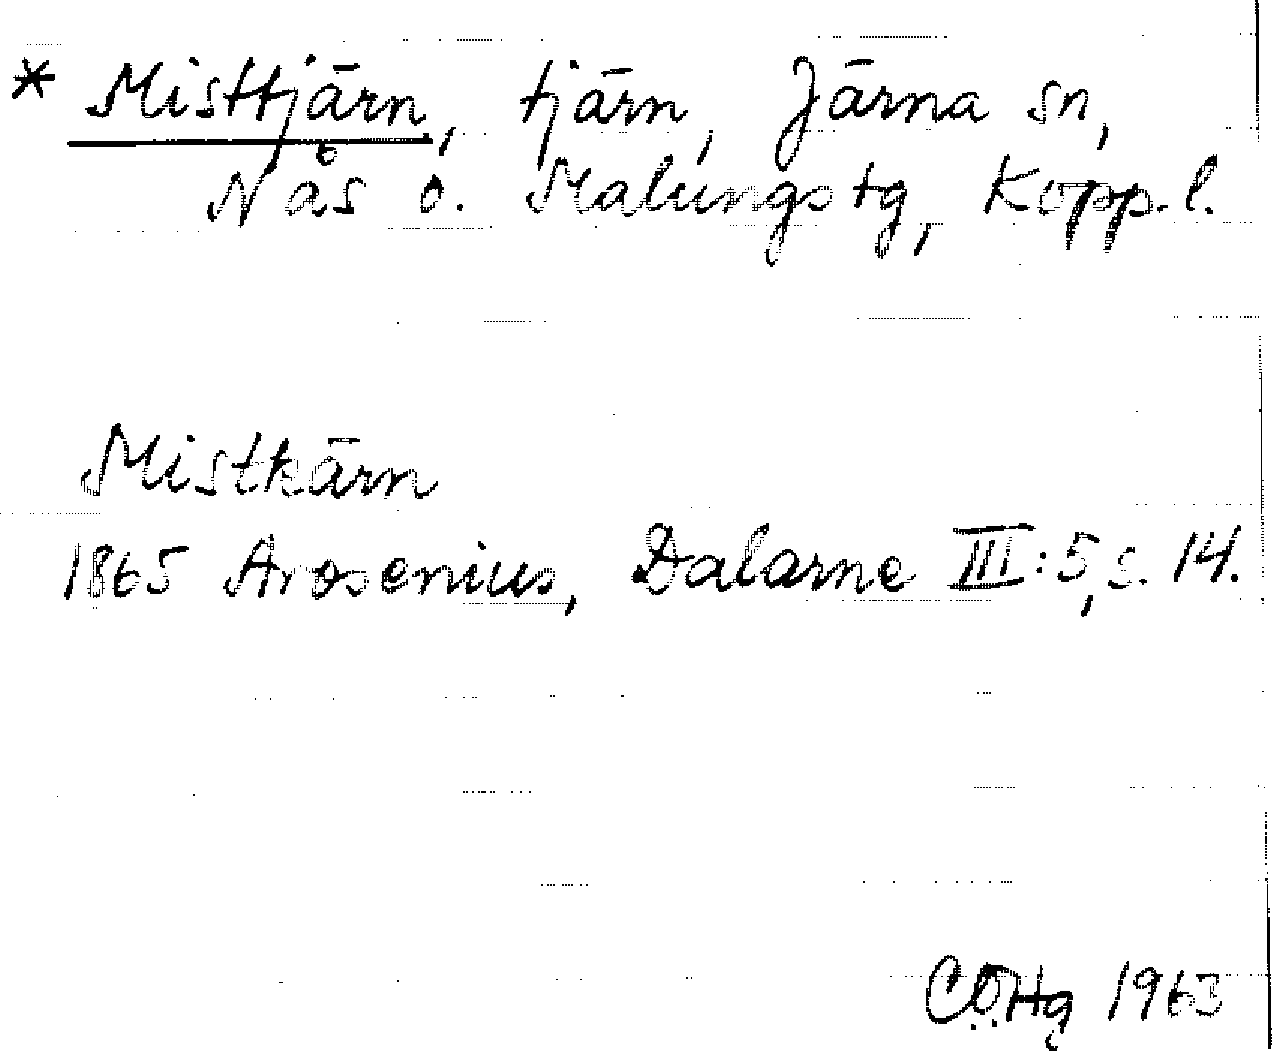 * Misttjärn, tjärn, Järna sn,
Nås o. Malungs tg, Kopp. l.
Mistkärn
1865 Arosenius, Dalarne III:5, s. 14.
1963